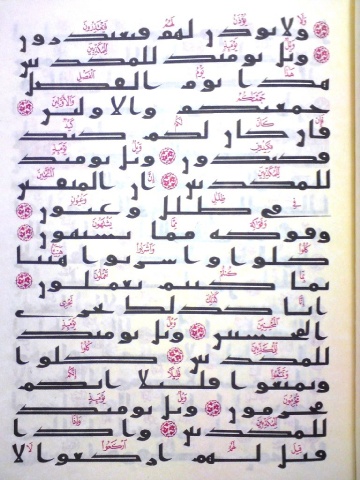 ولا يوذن لهم فيعتذرون
ويل يومئذ للمكذبين
هذا يوم الفصل
جمعنكم والاولين
فان كان لكم كيد
فكيدون ويل يومئذ
للمكذبين ان المتقين
في ظلل وعيون
وفوكه مما يشتهون
كلوا واشربوا هنيا
بما كنتم تعملون
انا كذلك نجزي
المحسنين ويل يومئذ
للمكذبين كلوا
وتمتعوا قليلا انكم
مجرمون ويل يومئذ
للمكذبين واذا
قيل لهم اركعوا لا